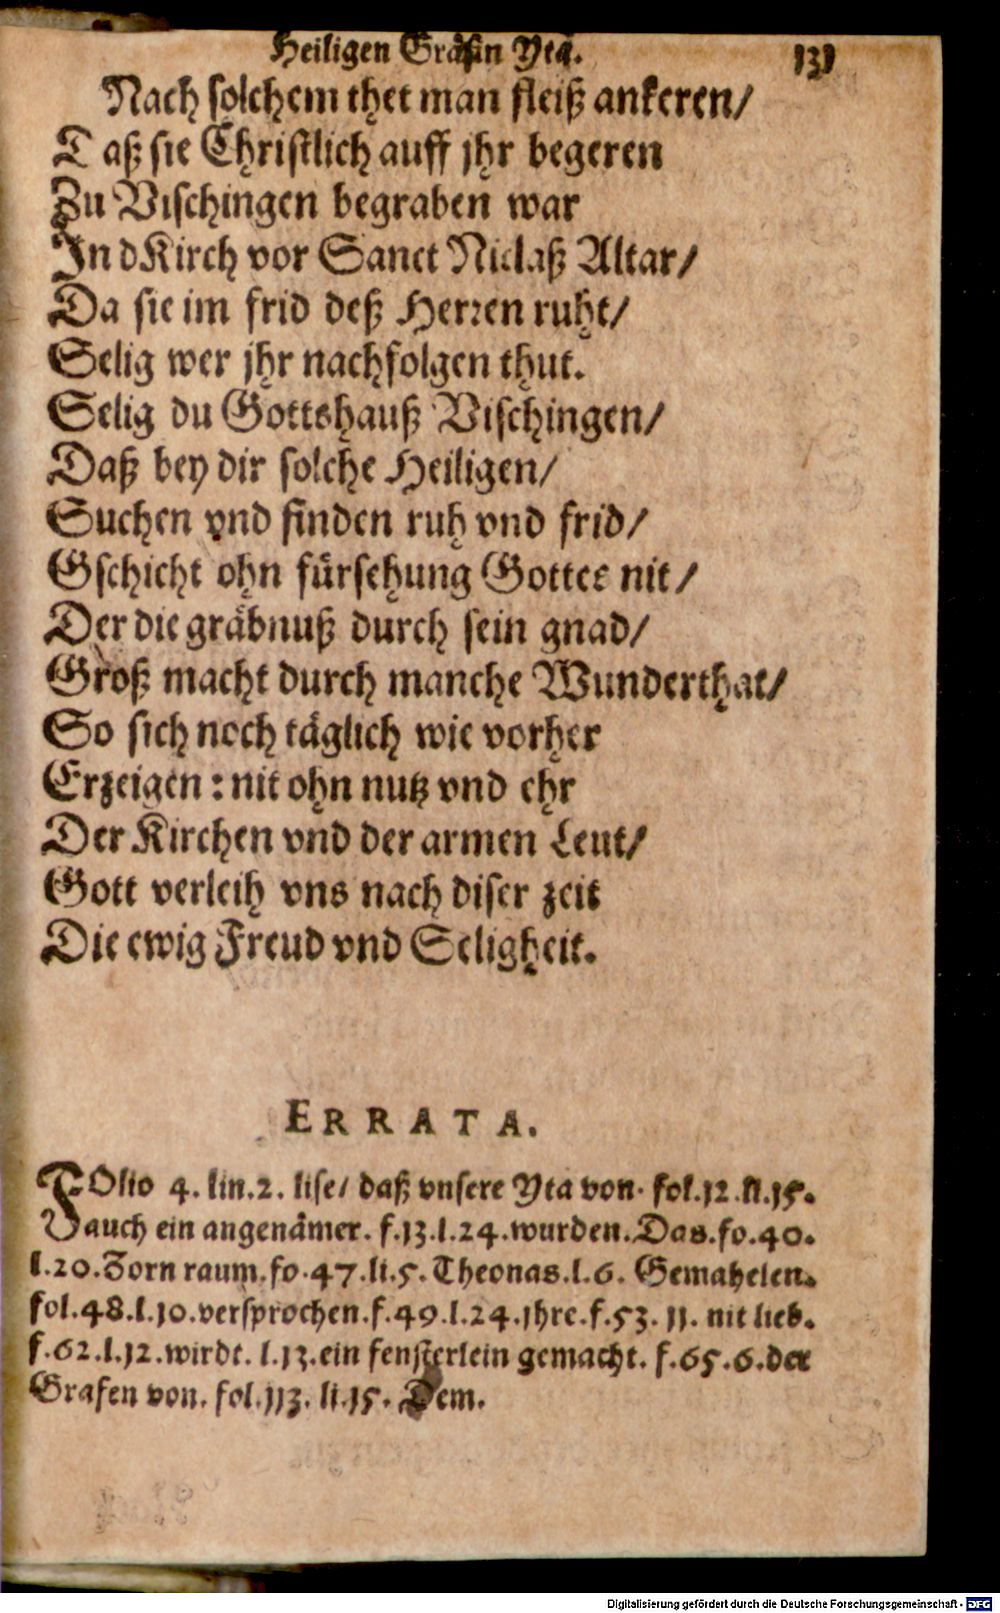 Heiligen Gräfin Yta. 131
Nach solchem thet man fleiß ankeren/
Daß sie Christlich auff jhr begeren
Zu Vischingen begraben war
In d Kirch vor Sanct Niclaß Altar/
Da sie im frid deß Herren ruht/
Selig wer jhr nachfolgen thut.
Selig du Gottshauß Vischingen/
Daß bey dir solche Heiligen/
Suchen vnd finden ruh vnd frid/
Gschicht ohn fürsehung Gottes nit/
Der die gräbnuß durch sein gnad/
Groß macht durch manche Wunderthat/
So sich noch täglich wie vorher
Erzeigen: nit ohn nutz vnd ehr
Der Kirchen vnd der armen Leut/
Gott verleih vns nach diser zeit
Die ewig Freud vnd Seligheit.
ERRATA.
FOlio 4. lin.2. lise/ daß vnsere Yta von. fol.12.li.15.
auch ein angenämer. f.13.l.24.wurden.Das.fo.40.
l.20.Zorn raum.fo.47.li.5.Theonas.l.6. Gemahelen.
fol.48.l.10.versprochen.f.49.l.24.jhre.f.53.11. nit lieb.
f.62.l.12.wirdt. l.13.ein fensterlein gemacht. f.65.6.der
Grafen von. fol.113. li.15. Dem.
Digitalisierung gefördert durch die Deutsche Forschungsgemeinschaft - DFG